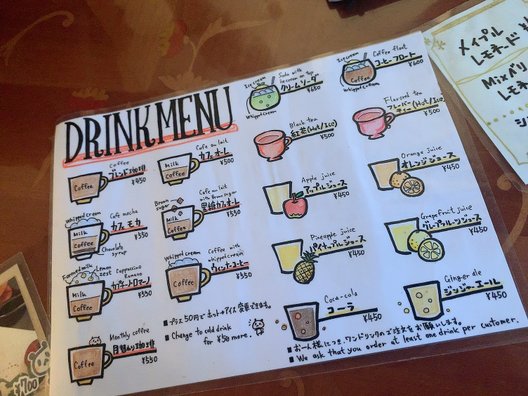 DRINK MENU
Coffee
Coffee
ブレンド珈琲
¥450
Milk
Coffee
Cafe au lait
カフェオーレ
¥500
Whipped cream
Milk
Coffee
Chocolate
Syrup
Cafe mocha
カフェモカ
¥550
Brown
Sugar
Milk
Coffee
Cafe au lait
黒糖カフェオーレ
¥550
Lemon
zest
Milk
Coffee
Cappuccino
Romano
カプチーノロマーノ
¥550
Whipped cream
Coffee
Coffee with
whipped cream
ウィンナーコーヒー
¥550
Coffee
Monthly coffee
月替わり珈琲
¥550
■プラス50円でホット⇔アイス変更できます。
■Change to cold drink
for ¥50 more.
Ice cream
Whipped cream
Soda with
ice cream on top
クリームソーダ
¥600
Ice cream
Coffee
Whipped cream
Coffee float
コーヒーフロート
¥600
Black tea
紅茶(Hot/Ice)
¥500
Flavored tea
フレーバー
ティー(Hot/Ice)
¥500
Apple juice
アップルジュース
¥450
Orange juice
オレンジジュース
¥450
Pineapple juice
パイナップルジュース
¥450
Grapefruit juice
グレープフルーツジュース
¥450
Coca-cola
コーラ
¥450
Ginger ale
ジンジャーエール
¥450
■お一人様につき、ワンドリンクのご注文をお願いします。
■We ask that you order at least one drink per customer.
メイプル
レモネード
Mixベリー
レモネード
¥700